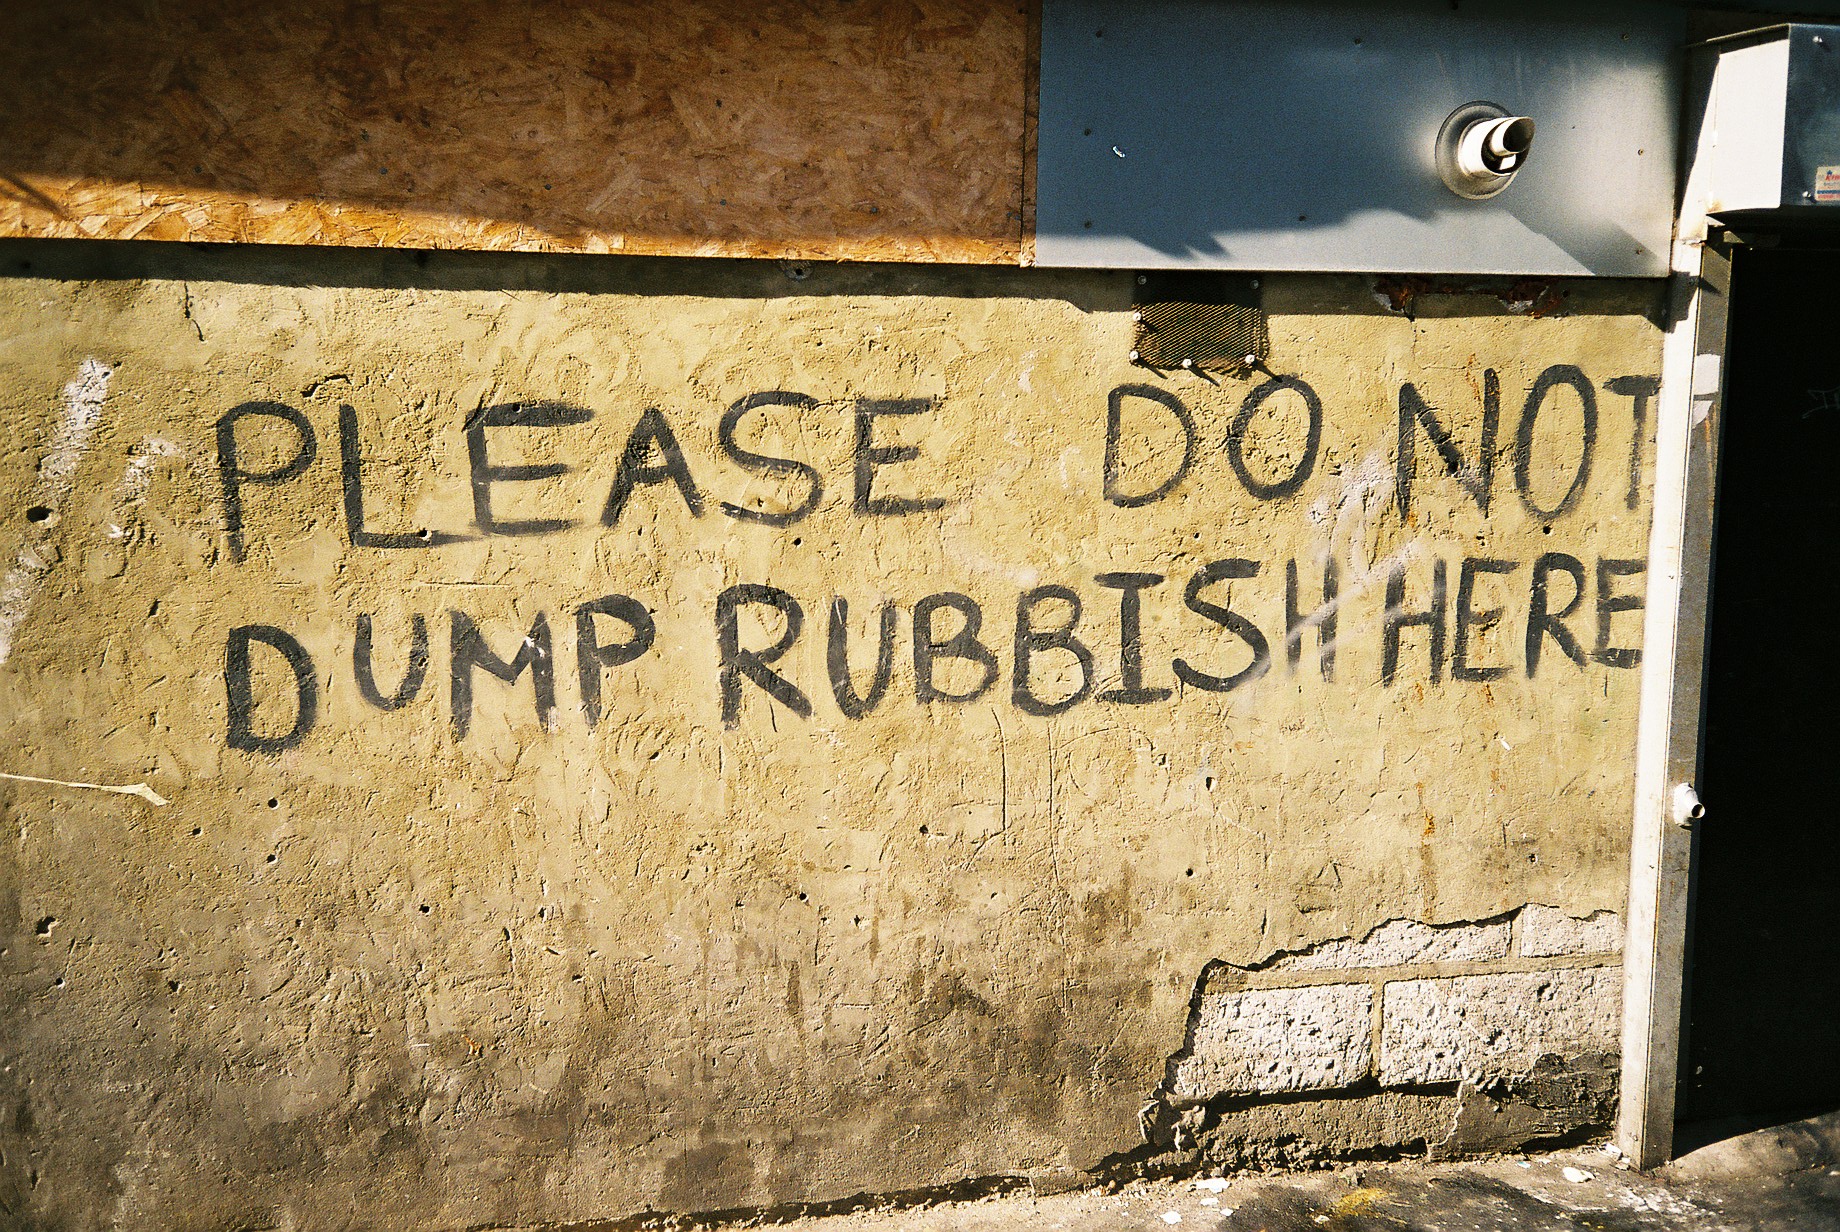 PLEASE DO NOT
DUMP RUBBISH HERE